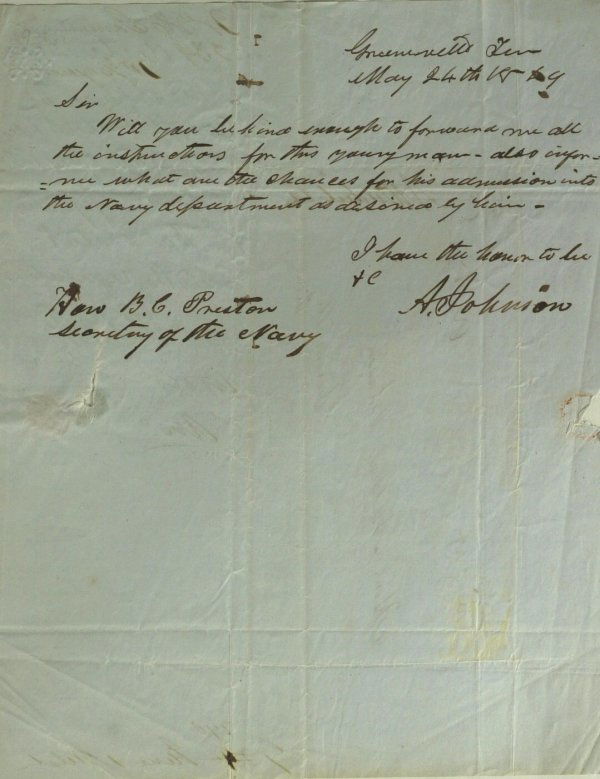 Greeneville Ten
May 24th 1849
Sir
Will you be kind enough to forward me all
the instructions for this young man - also infor=
=me what are the chances for his admission into
the Navy department as desired by him -
I have the honor to be
&C
A. Johnson
Hon B. C. Preston
Secretary of the Navy